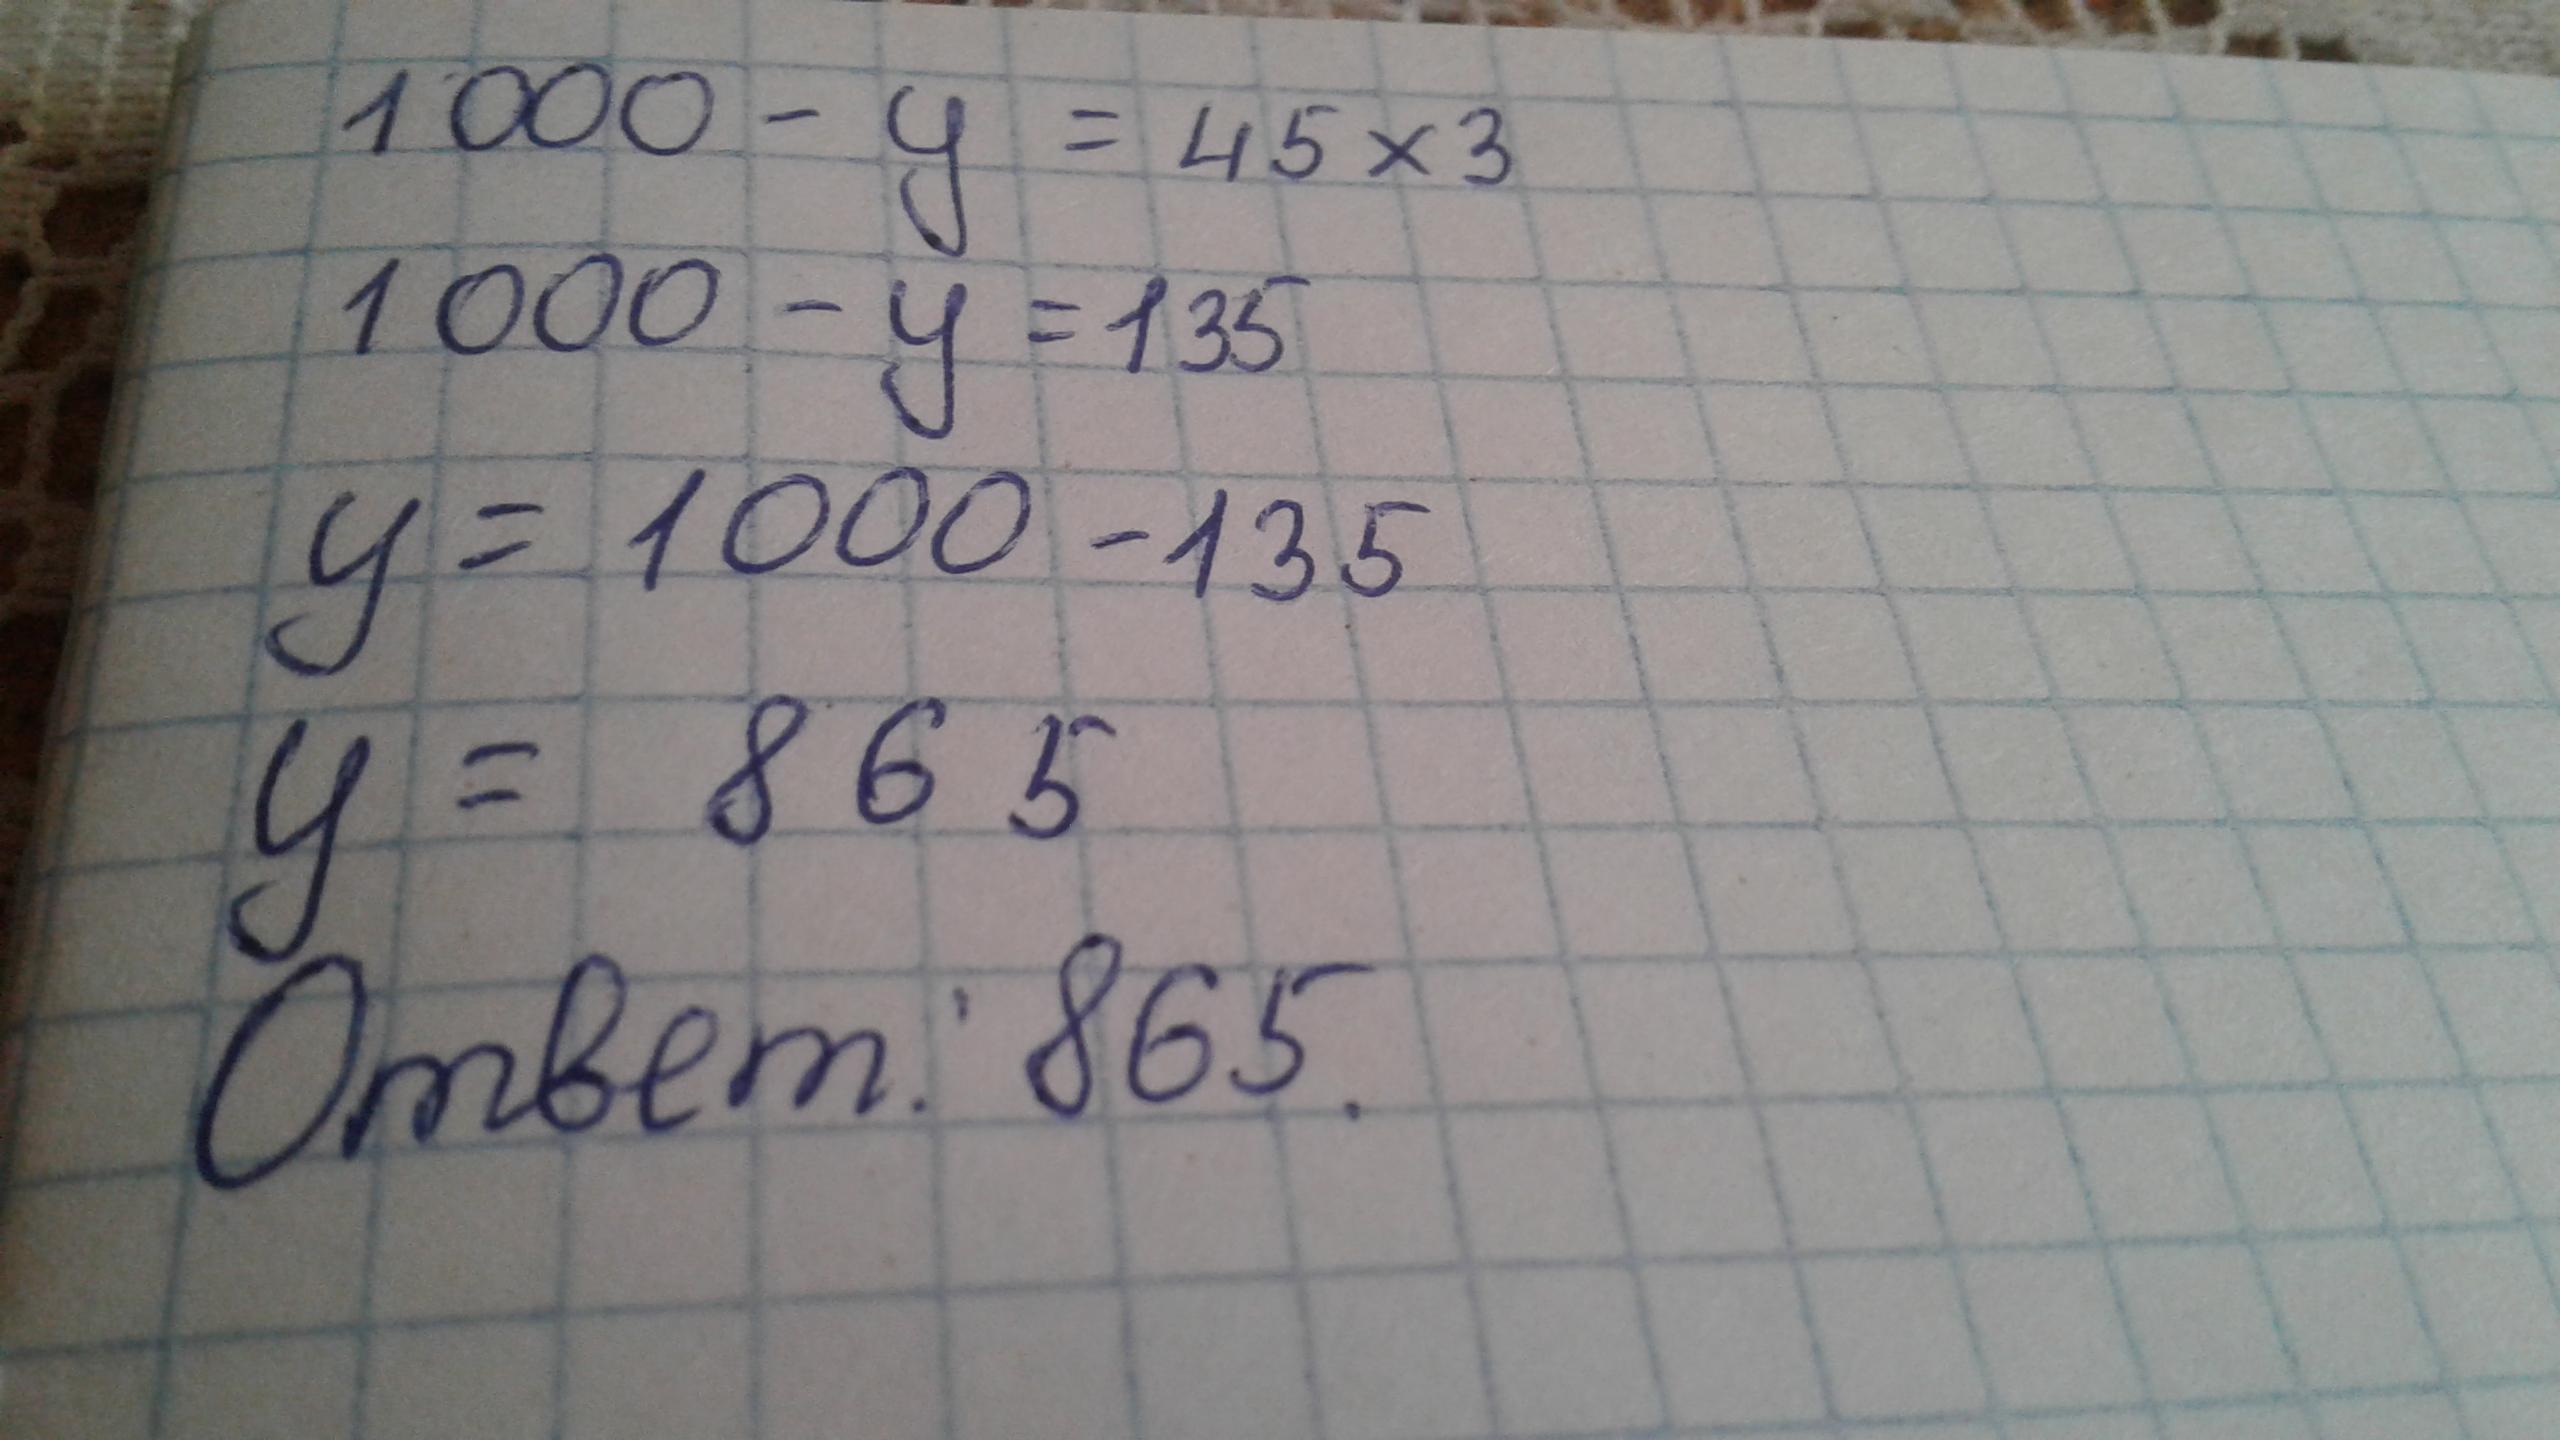 1000 - y = 45 × 3
1000 - y = 135
y = 1000 - 135
y = 865
Ответ: 865.